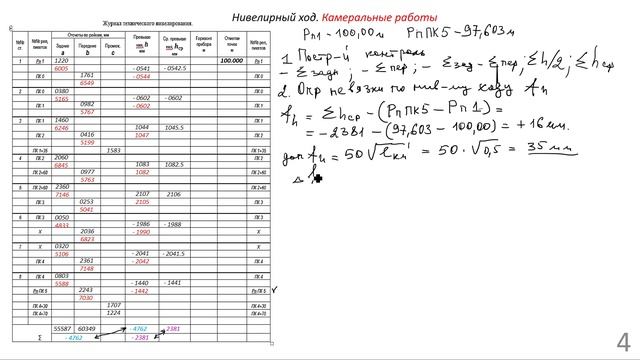 Нивелирный ход. Камеральные работы
Журнал технического нивелирования.
Рп1 – 100,00м Рп ПК5 – 97,603м
№№ ст. №№ реп, пикетов Отсчеты по рейкам, мм Задняя а Передняя b Промеж, с Превыше ние, h мм Ср. превыше ние, hср мм Горизонт прибора м Отметки точек м №№ реп, пикетов
1 Рп 1 1220 100.000 Рп 1
6005 - 0541 - 0542.5
ПК 0 1761 - 0544 ПК 0
6549
2 ПК 0 0380 ПК 0
5165 - 0602 - 0602
ПК 1 0982 - 0602 ПК 1
5767
3 ПК 1 1460 ПК 1
6246 1044 1045.5
ПК 2 0416 1047 ПК 2
5199
ПК 1+35 1583 ПК 1+35
4 ПК 2 2060 ПК 2
6845 1083 1082.5
ПК 2+60 0977 1082 ПК 2+60
5763
5 ПК 2+60 2360 ПК 2+60
7146 2107 2106
ПК 3 0253 2105 ПК 3
5041
6 ПК 3 0050 ПК 3
4833 - 1986 - 1988
Х 2036 - 1990 Х
6823
7 Х 0320 Х
5106 - 2041 - 2041.5
ПК 4 2361 - 2042 ПК 4
7148
8 ПК 4 0803 ПК 4
5588 - 1440 - 1441
Рп ПК 5 2243 - 1442 Рп ПК 5
7030
ПК 4+30 1707 ПК 4+30
ПК 4+70 1224 ПК 4+70
Σ 55587 60349 - 4762 - 2381
- 4762 - 2381
1. Постр-й контроль
– Σзадн ; – Σпер ; – Σзад – Σпер ; Σh/2 ; Σhср
2. Опр невязки по нив-му ходу
= Σhср – (Рп ПК5 – Рп 1) =
= – 2381 – (97,603 – 100,00) = + 16 мм.
= 50 √ℓкм = 50 · √0,5 = 35 мм
4